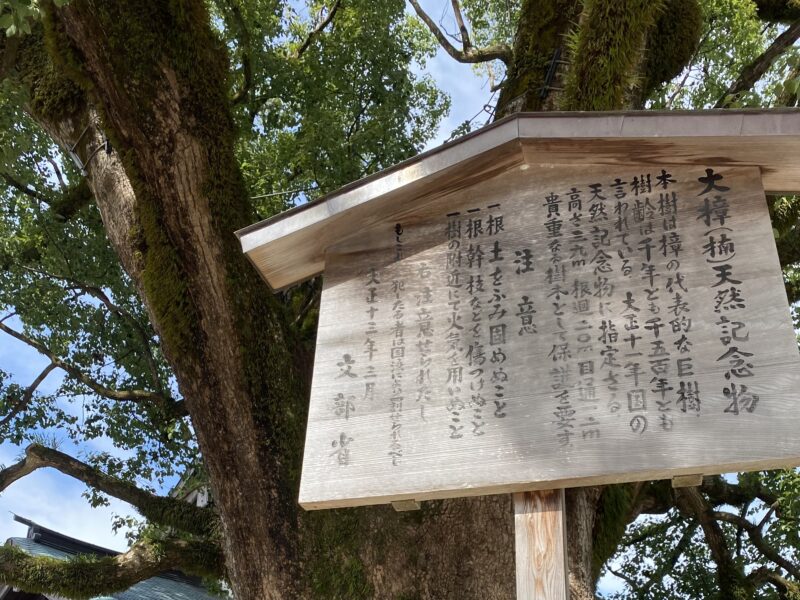 大樟(楠)天然記念物
本樹は樟の代表的な巨樹
樹齢は千年とも千五百年とも
言われている 大正十一年国の
天然記念物に指定さる
高さ二九m 根廻二〇m 目通一二m
貴重なる樹木として保護を要す
注意
一根土をふみ固めぬこと
一根幹枝などを傷つけぬこと
一樹の附近にて火気を用いぬこと
右注意せられたし
もしこれを犯したる者は国法により罰せらるべし
大正十三年三月
文部省